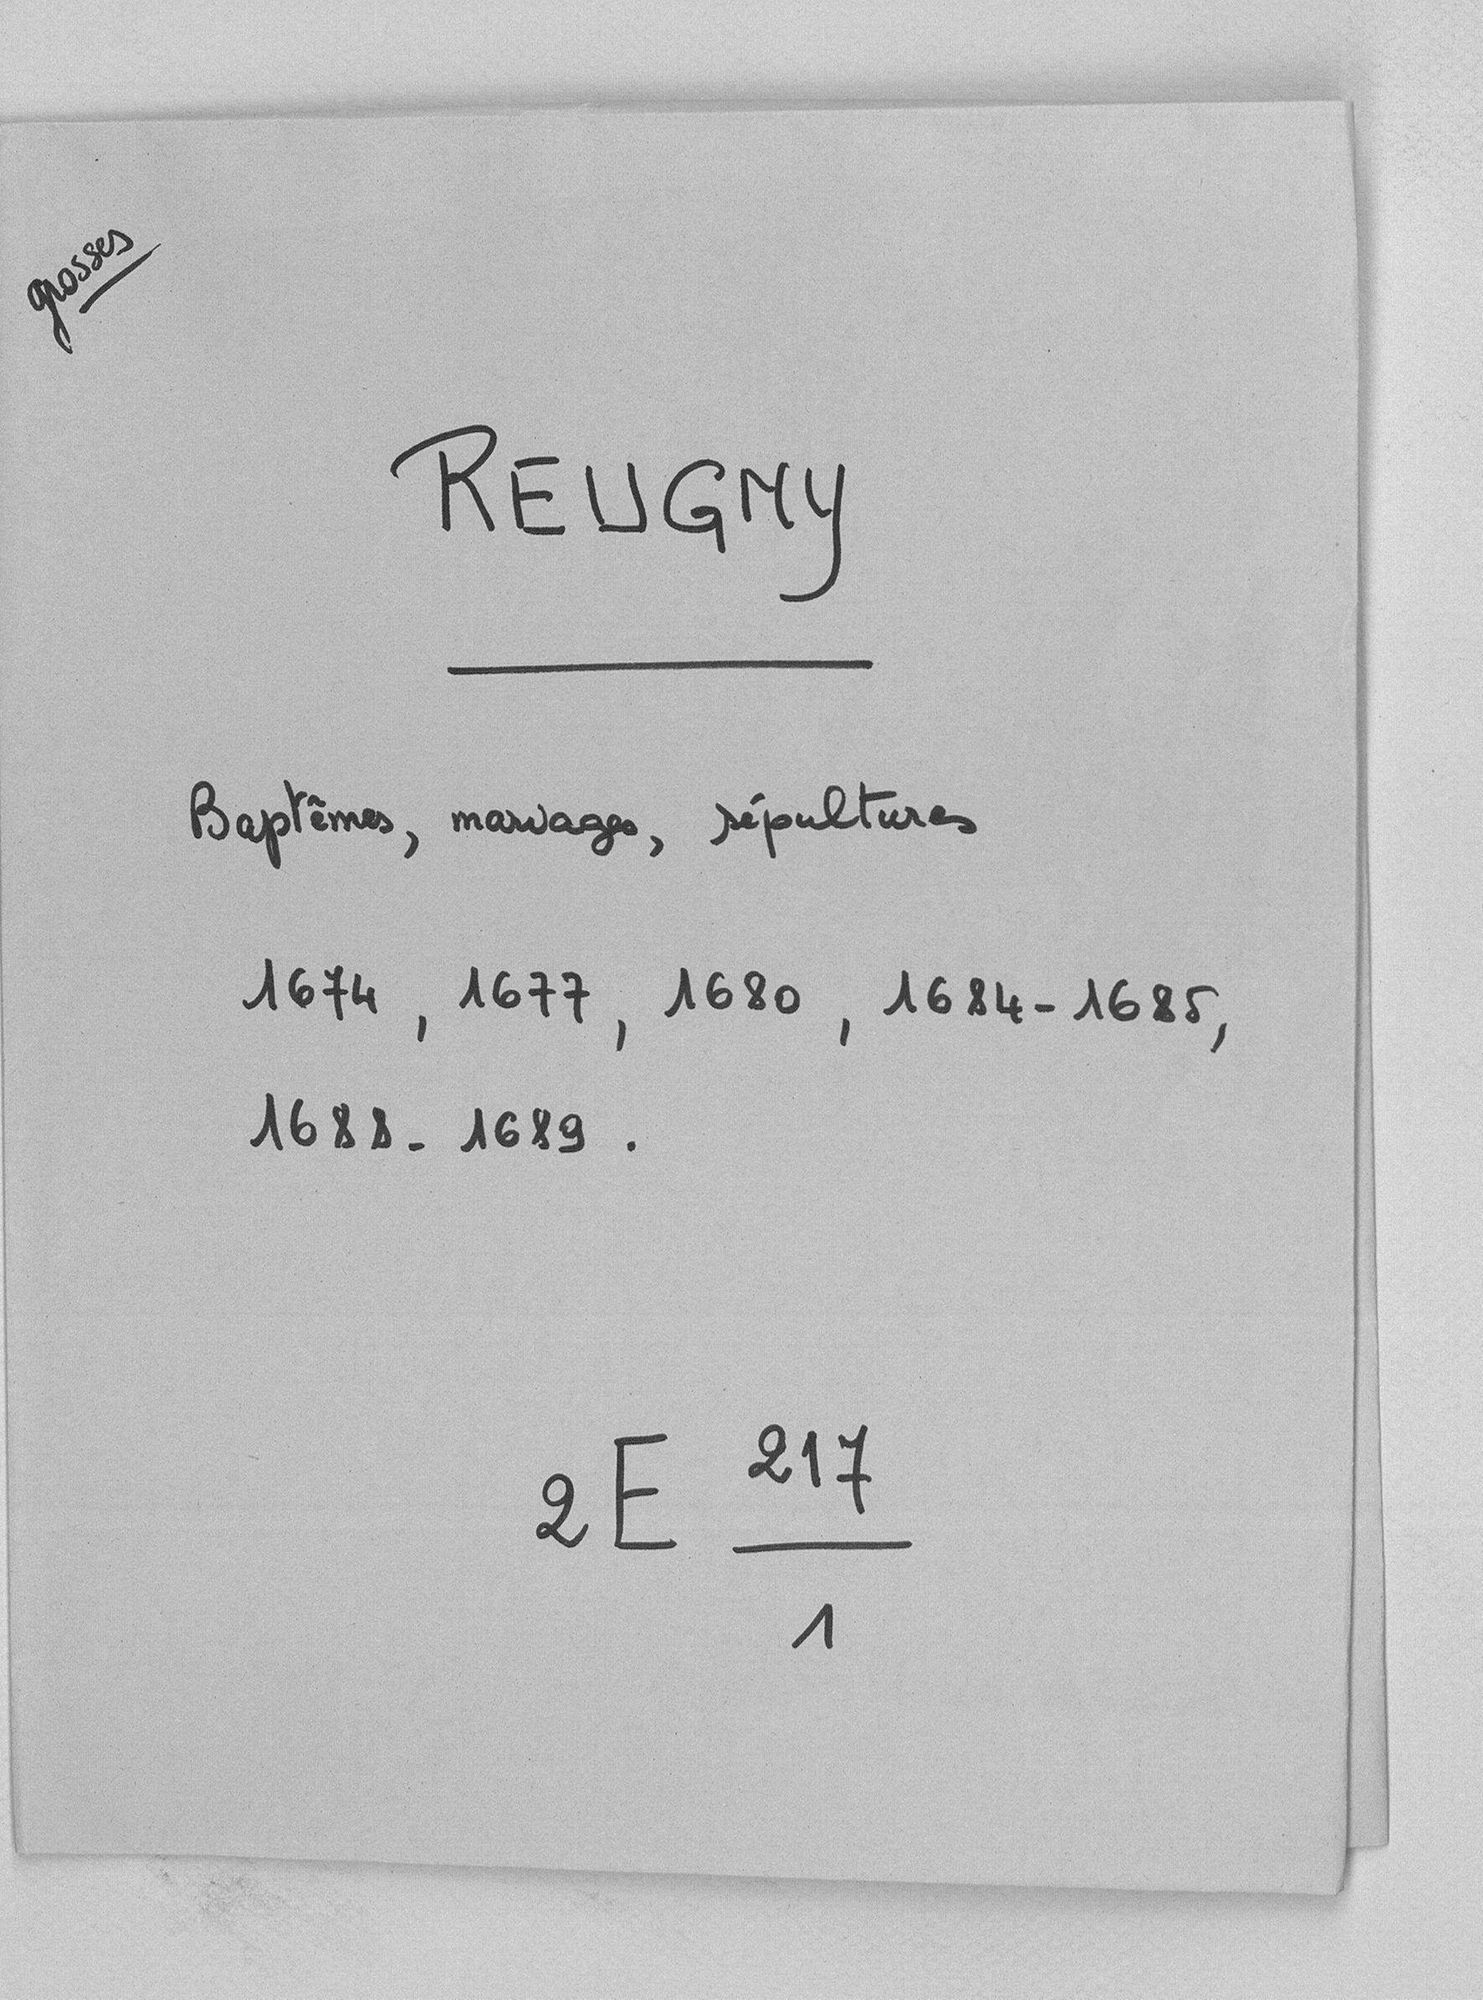 grosses
REUGNY
Baptêmes, mariages, sépultures
1674, 1677, 1680, 1684-1685,
1688-1689.
2E 217
1